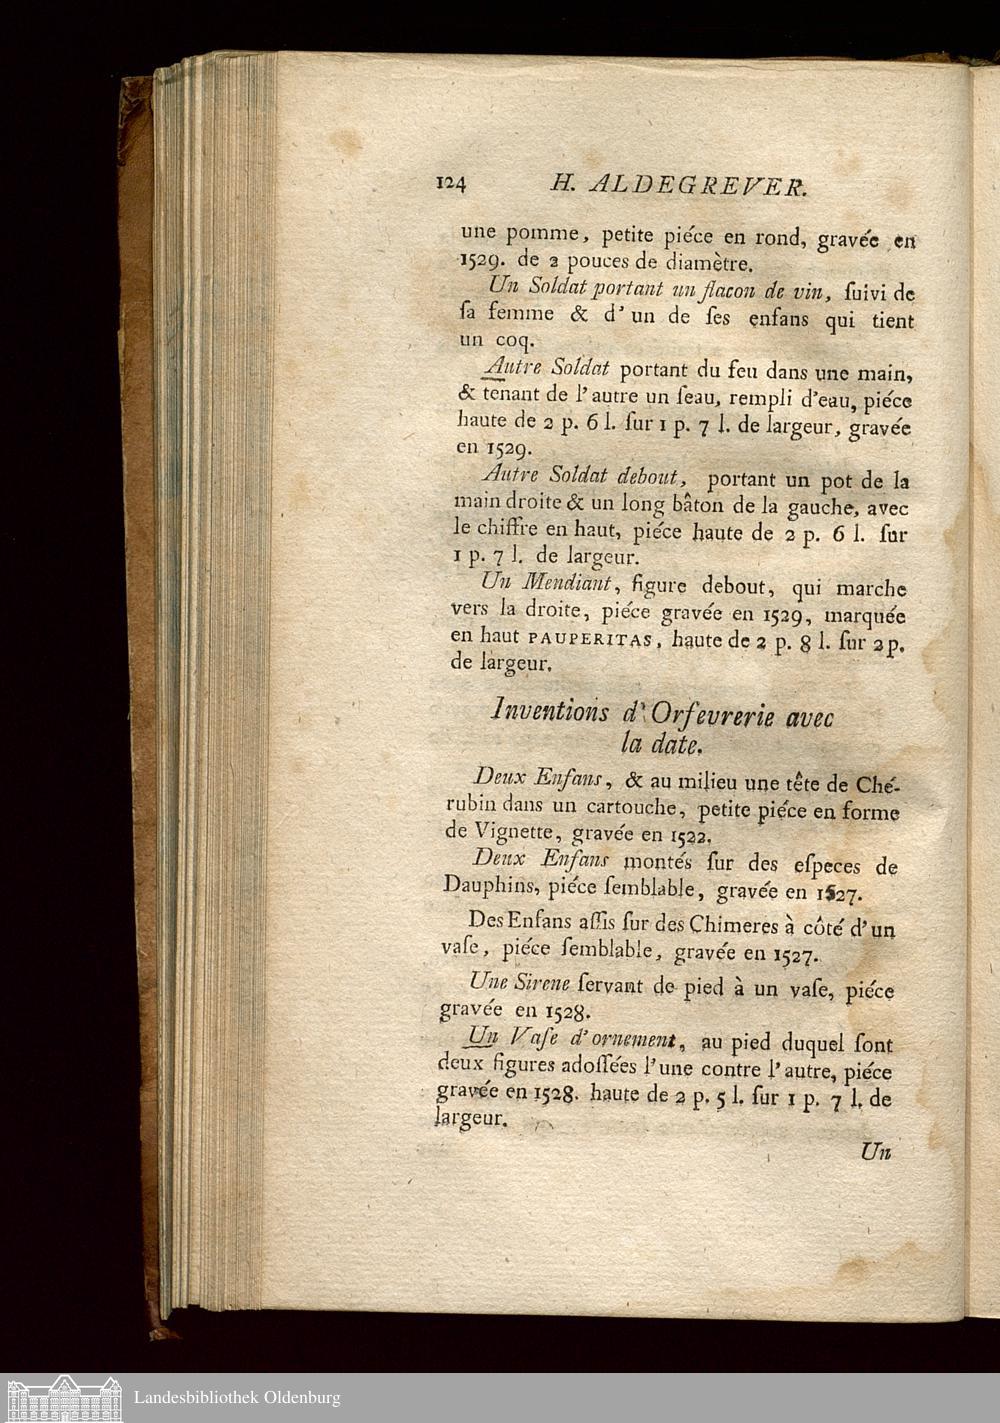 124 H. ALDEGREVER.
une pomme, petite piéce en rond, gravée en
1529. de 2 pouces de diamètre.
Un Soldat portant un flacon de vin, ſuivi de
ſa femme & d' un de ſes enfans qui tient
un coq.
Autre Soldat portant du feu dans une main,
& tenant de l' autre un ſeau, rempli d'eau, piéce
haute de 2 p. 6 l. ſur 1 p. 7 l. de largeur, gravée
en 1529.
Autre Soldat debout, portant un pot de la
main droite & un long bâton de la gauche, avec
le chiffre en haut, piéce haute de 2 p. 6 l. ſur
1 p. 7 l. de largeur.
Un Mendiant, figure debout, qui marche
vers la droite, piéce gravée en 1529, marquée
en haut PAUPERITAS, haute de 2 p. 8 l. ſur 2 p.
de largeur.
Inventions d' Orfevrerie avec
la date.
Deux Enfans, & au milieu une tête de Ché-
rubin dans un cartouche, petite piéce en forme
de Vignette, gravée en 1522.
Deux Enfans montés ſur des eſpeces de
Dauphins, piéce ſemblable, gravée en 1527.
Des Enfans aſſis ſur des Chimeres à côté d' un
vaſe, piéce ſemblable, gravée en 1527.
Une Sirene ſervant de pied à un vaſe, piéce
gravée en 1528.
Un Vaſe d' ornement, au pied duquel ſont
deux figures adoſſées l' une contre l' autre, piéce
gravée en 1528. haute de 2 p. 5 l. ſur 1 p. 7 l. de
largeur.
Un
Landesbibliothek Oldenburg